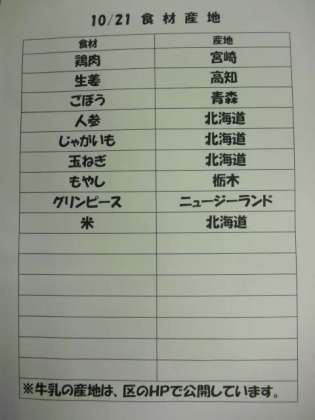 10/21 食材産地
食材 産地
鶏肉 宮崎
生姜 高知
ごぼう 青森
人参 北海道
じゃがいも 北海道
玉ねぎ 北海道
もやし 栃木
グリンピース ニュージーランド
米 北海道
※牛乳の産地は、区のHPで公開しています。